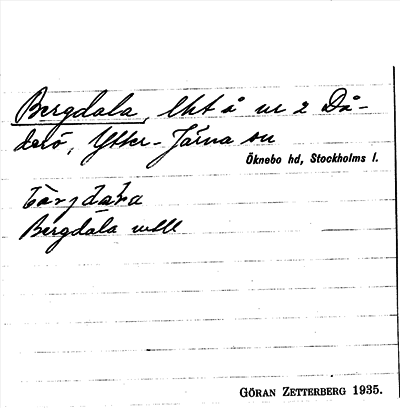 Bergdala, lht å nr 2 Då-
derö, Ytter-Järna sn
Öknebo hd, Stockholms l.
Bergdala
GÖRAN ZETTERBERG 1935.